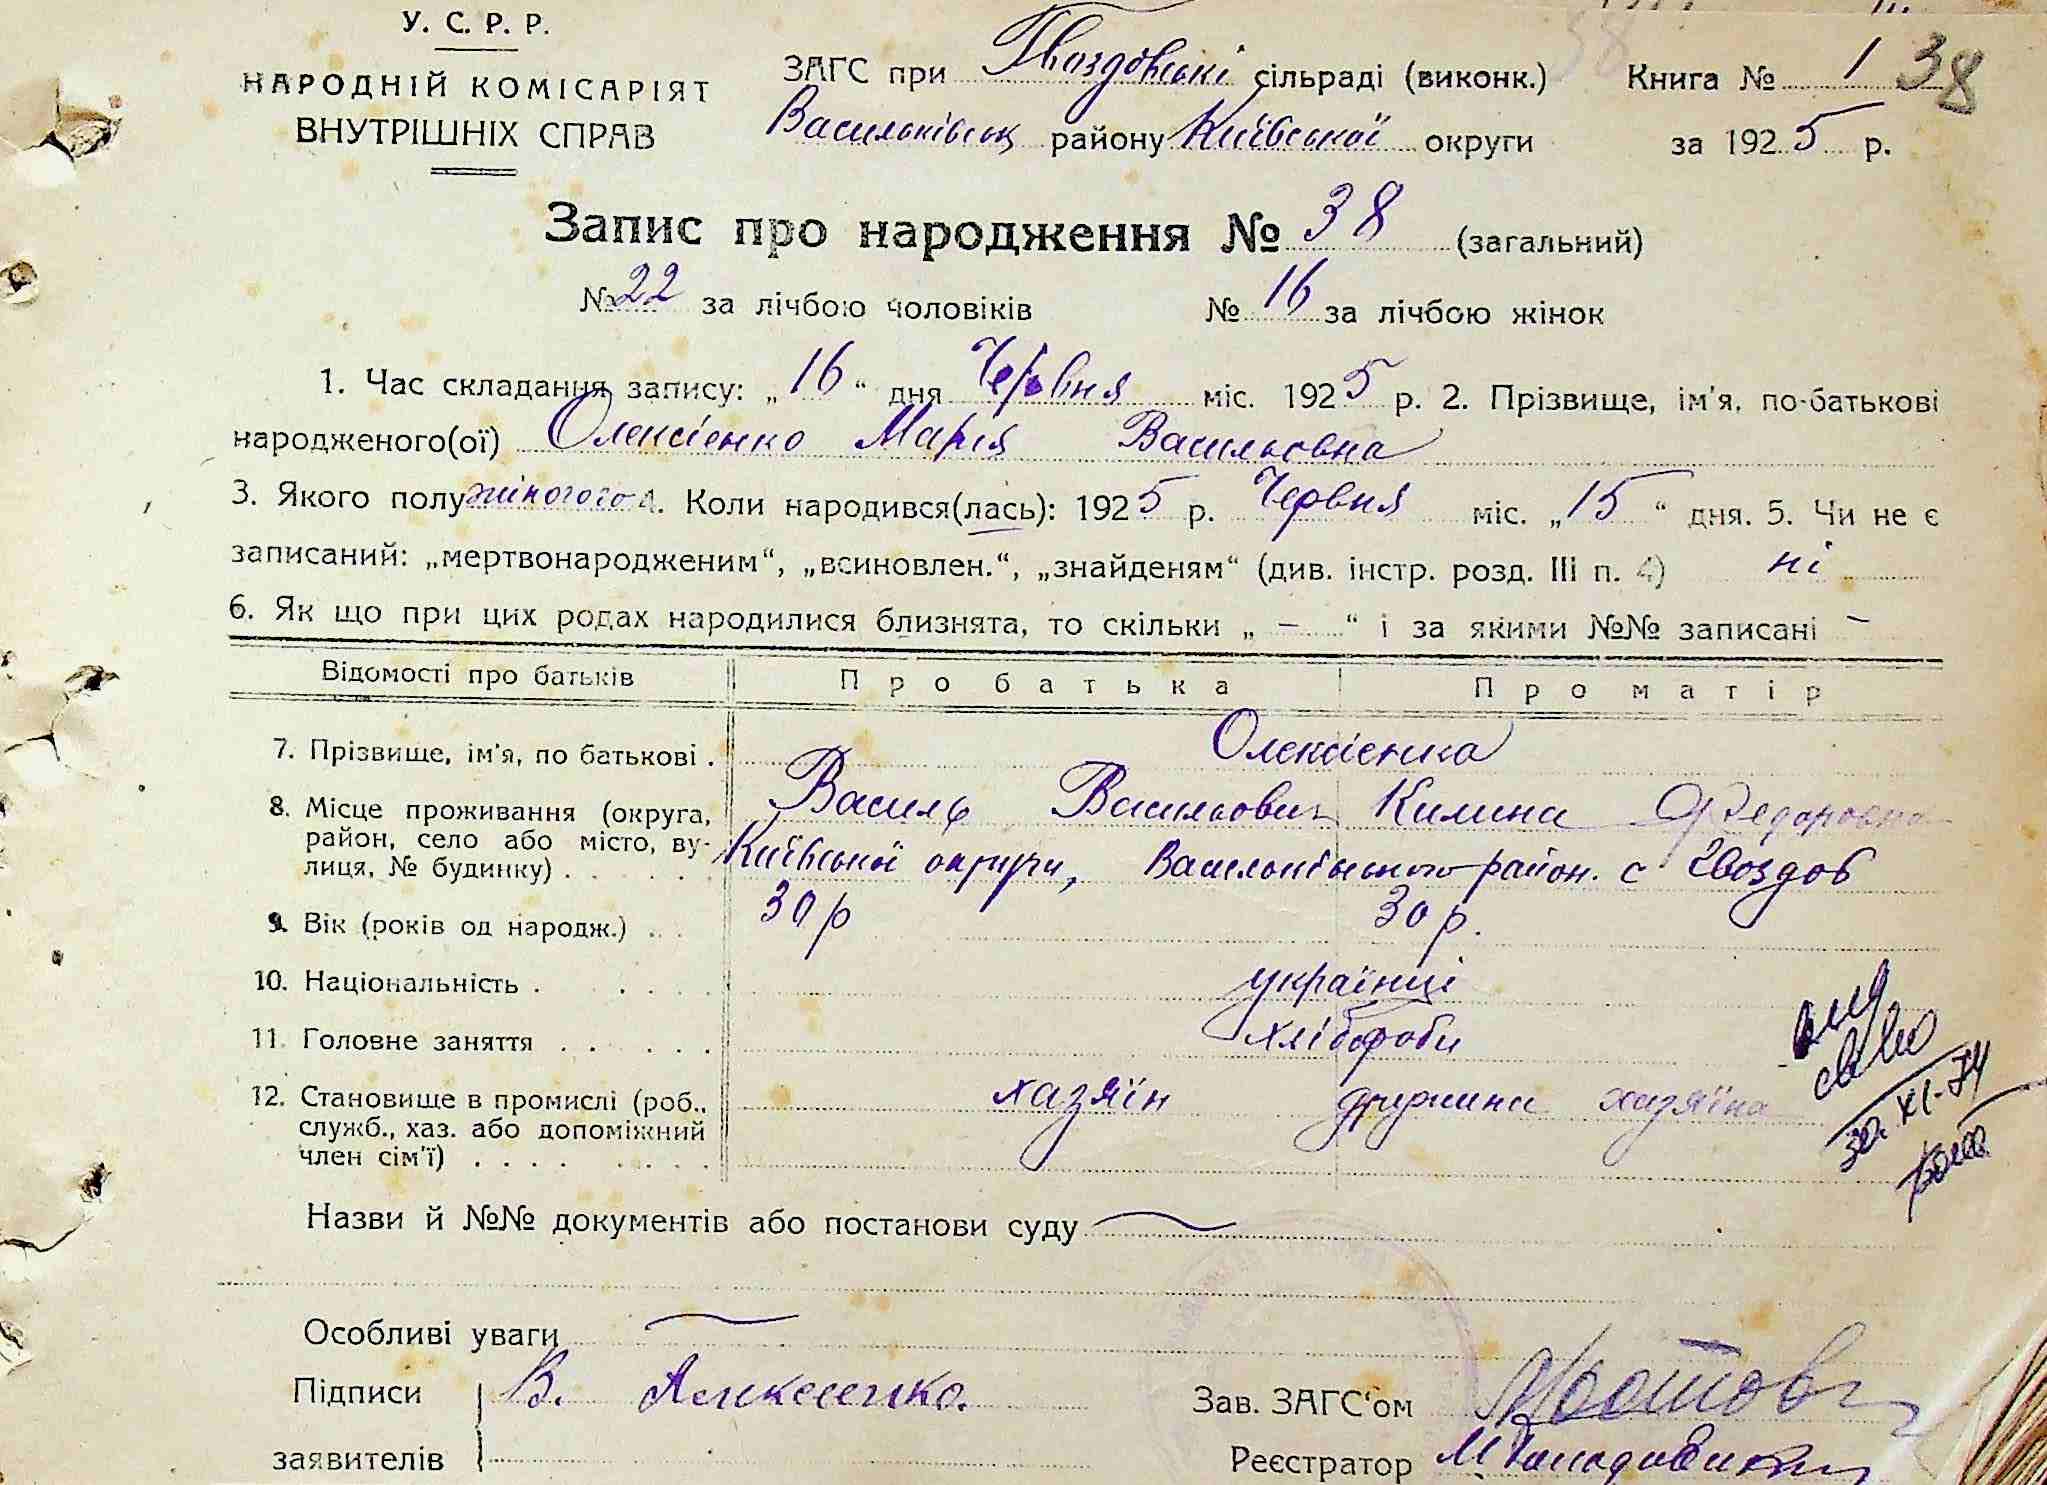 У. С. Р. Р.
НАРОДНІЙ КОМІСАРІЯТ
ВНУТРІШНІХ СПРАВ
ЗАГС при Гвоздовські сільраді (виконк.) Книга № 1 38
Васильківськ району Київської округи за 1925 р.
Запис про народження № 38 (загальний)
№ 22 за лічбою чоловіків № 16 за лічбою жінок
1. Час складання запису: „16“ дня Червня міс. 1925 р. 2. Прізвище, ім'я, по-батькові
народженого(ої) Олексієнко Марія Васильовна
3. Якого полу жіночого 4. Коли народився(лась): 1925 р. Червня міс. „15“ дня. 5. Чи не є
записаний: „мертвонародженим“, „всиновлен.“, „знайденям“ (див. інстр. розд. III п. 4) ні
6. Як що при цих родах народилися близнята, то скільки „ — “ і за якими №№ записані —
Відомості про батьків Про батька Про матір
7. Прізвище, ім'я, по батькові . Олексієнка
Василь Васильович Килина Федоровна
8. Місце проживання (округа,
район, село або місто, ву-
лиця, № будинку) . . . . Київської округи, Васильківського район. с Гвоздов
9. Вік (років од народж.) . . 30 р 30 р.
10. Національність . . . . . українці
11. Головне заняття . . . . . хлібороби
12. Становище в промислі (роб.,
служб., хаз. або допоміжний
член сім'ї) . . . . . . . . хазяїн дружина хазяїна
св-во
30. XI-74
Назви й №№ документів або постанови суду
Особливі уваги
Підписи В. Алексієнко.
заявителів
Зав. ЗАГС'ом
Реєстратор